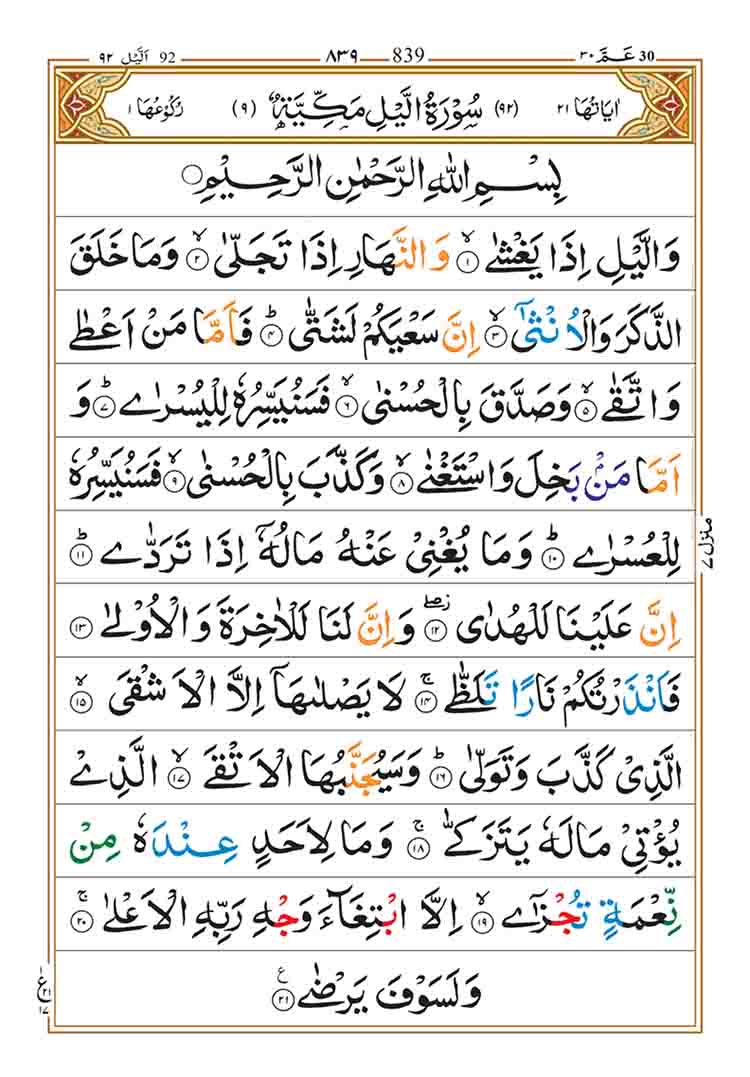 30 عَمَّ ٣٠ 839 ٨٣٩ 92 اَلَّيْل ٩٢
اٰيَاتُهَا ٢١ (٩٢) سُوْرَةُ الَّيْلِ مَكِّيَّةٌ (٩) رُكُوْعُهَا ١
بِسْمِ اللّٰهِ الرَّحْمٰنِ الرَّحِيْمِ
وَالَّيْلِ اِذَا يَغْشٰى ۙ‏﴿۱﴾ وَالنَّهَارِ اِذَا تَجَلّٰى ۙ‏﴿۲﴾ وَمَا خَلَقَ
الذَّكَرَ وَالْاُنْثٰٓى ۙ‏﴿۳﴾ اِنَّ سَعْيَكُمْ لَشَتّٰى ؕ‏﴿۴﴾ فَاَمَّا مَنْ اَعْطٰى
وَاتَّقٰى ۙ‏﴿۵﴾ وَصَدَّقَ بِالْحُسْنٰى ۙ‏﴿۶﴾ فَسَنُيَسِّرُهٗ لِلْيُسْرٰى ؕ‏﴿۷﴾ وَ
اَمَّا مَنْۢ بَخِلَ وَاسْتَغْنٰى ۙ‏﴿۸﴾ وَكَذَّبَ بِالْحُسْنٰى ۙ‏﴿۹﴾ فَسَنُيَسِّرُهٗ
لِلْعُسْرٰى ؕ‏﴿۱۰﴾ وَمَا يُغْنِىْ عَنْهُ مَالُهٗٓ اِذَا تَرَدّٰى ؕ‏﴿۱۱﴾
اِنَّ عَلَيْنَا لَلْهُدٰى ‏ۖ﴿۱۲﴾ وَاِنَّ لَنَا لَلْاٰخِرَةَ وَالْاُوْلٰى ‏﴿۱۳﴾
فَاَنْذَرْتُكُمْ نَارًا تَلَظّٰى‌ۚ‏﴿۱۴﴾ لَا يَصْلٰٮهَاۤ اِلَّا الْاَشْقَى ۙ‏﴿۱۵﴾
الَّذِىْ كَذَّبَ وَتَوَلّٰى ؕ‏﴿۱۶﴾ وَسَيُجَنَّبُهَا الْاَتْقَى ۙ‏﴿۱۷﴾ الَّذِىْ
يُؤْتِىْ مَالَهٗ يَتَزَكّٰى‌ ۚ‏﴿۱۸﴾ وَمَا لِاَحَدٍ عِنْدَهٗ مِنْ
نِّعْمَةٍ تُجْزٰٓى ۙ‏﴿۱۹﴾ اِلَّا ابْتِغَآءَ وَجْهِ رَبِّهِ الْاَعْلٰى‌ۚ‏﴿۲۰﴾
وَلَسَوْفَ يَرْضٰى ‏﴿۲۱﴾ ع
منزل ۷
ع ٢١ ١٧